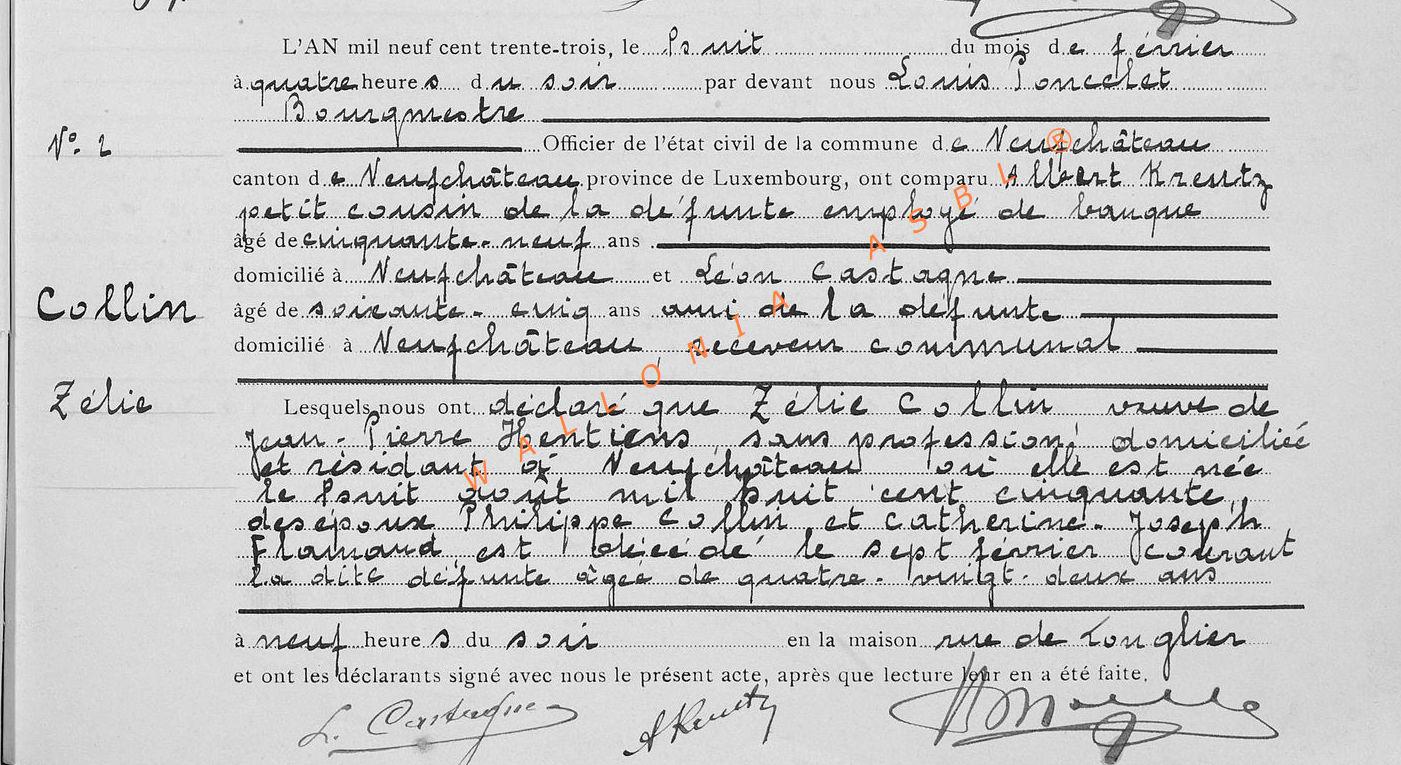 L'AN mil neuf cent trente-trois, le huit du mois de février
à quatre heures du soir par devant nous Louis Poncelet
Bourgmestre
Nº. 2
Officier de l'état civil de la commune de Neufchâteau
canton de Neufchâteau province de Luxembourg, ont comparu Albert Kreutz
petit cousin de la défunte employé de banque
âgé de cinquante-neuf ans
domicilié à Neufchâteau et Léon Castagne
Collin
âgé de soixante-cinq ans ami de la défunte
domicilié à Neufchâteau, receveur communal
Zélie
Lesquels nous ont déclaré que Zélie Collin veuve de
Jean-Pierre Hentiens, sans profession, domiciliée
et résidant à Neufchâteau où elle est née
le huit août mil huit cent cinquante,
des époux Philippe Collin et Catherine-Joseph
Flamand, est décédé le sept février courant
la dite défunte âgée de quatre-vingt-deux ans
à neuf heures du soir en la maison rue de Longlier
et ont les déclarants signé avec nous le présent acte, après que lecture leur en a été faite.
L. Castagne
A Kreutz
WALLONIA ASBL ®